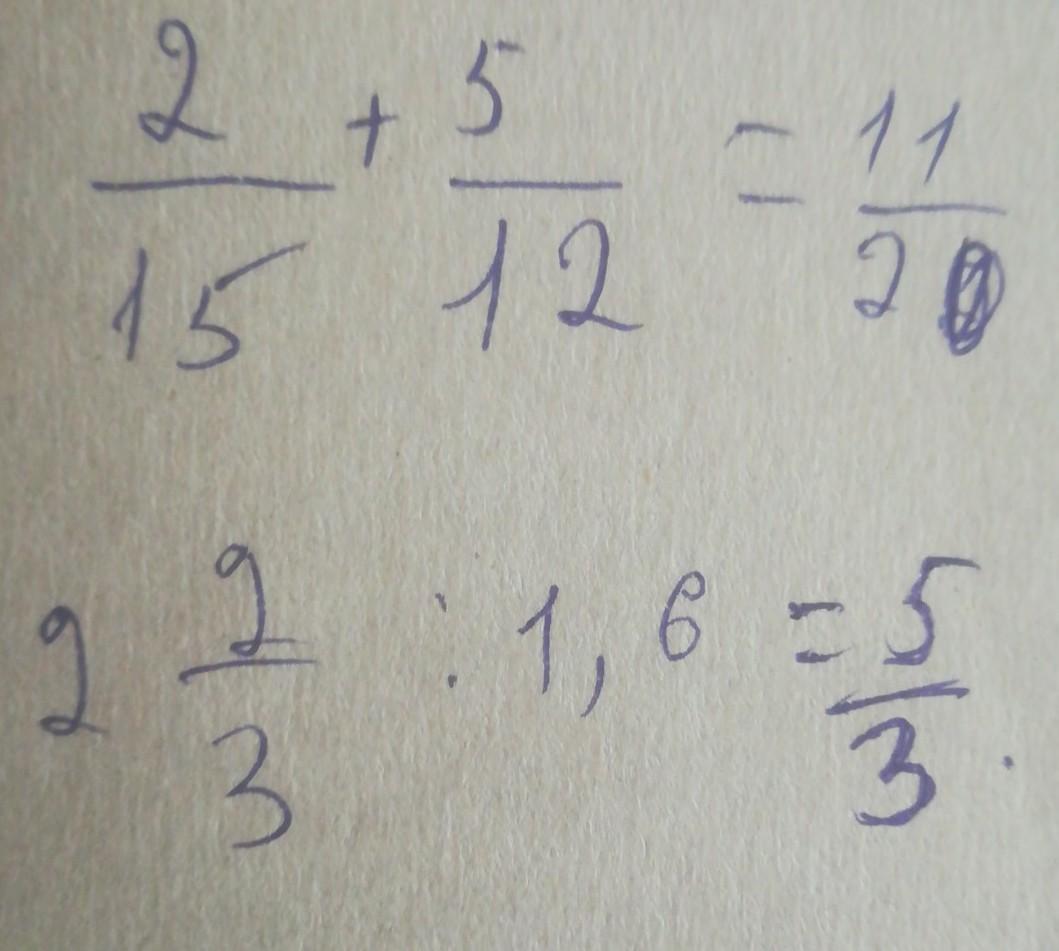 2/15 + 5/12 = 11/20
2 2/3 : 1,6 = 5/3.